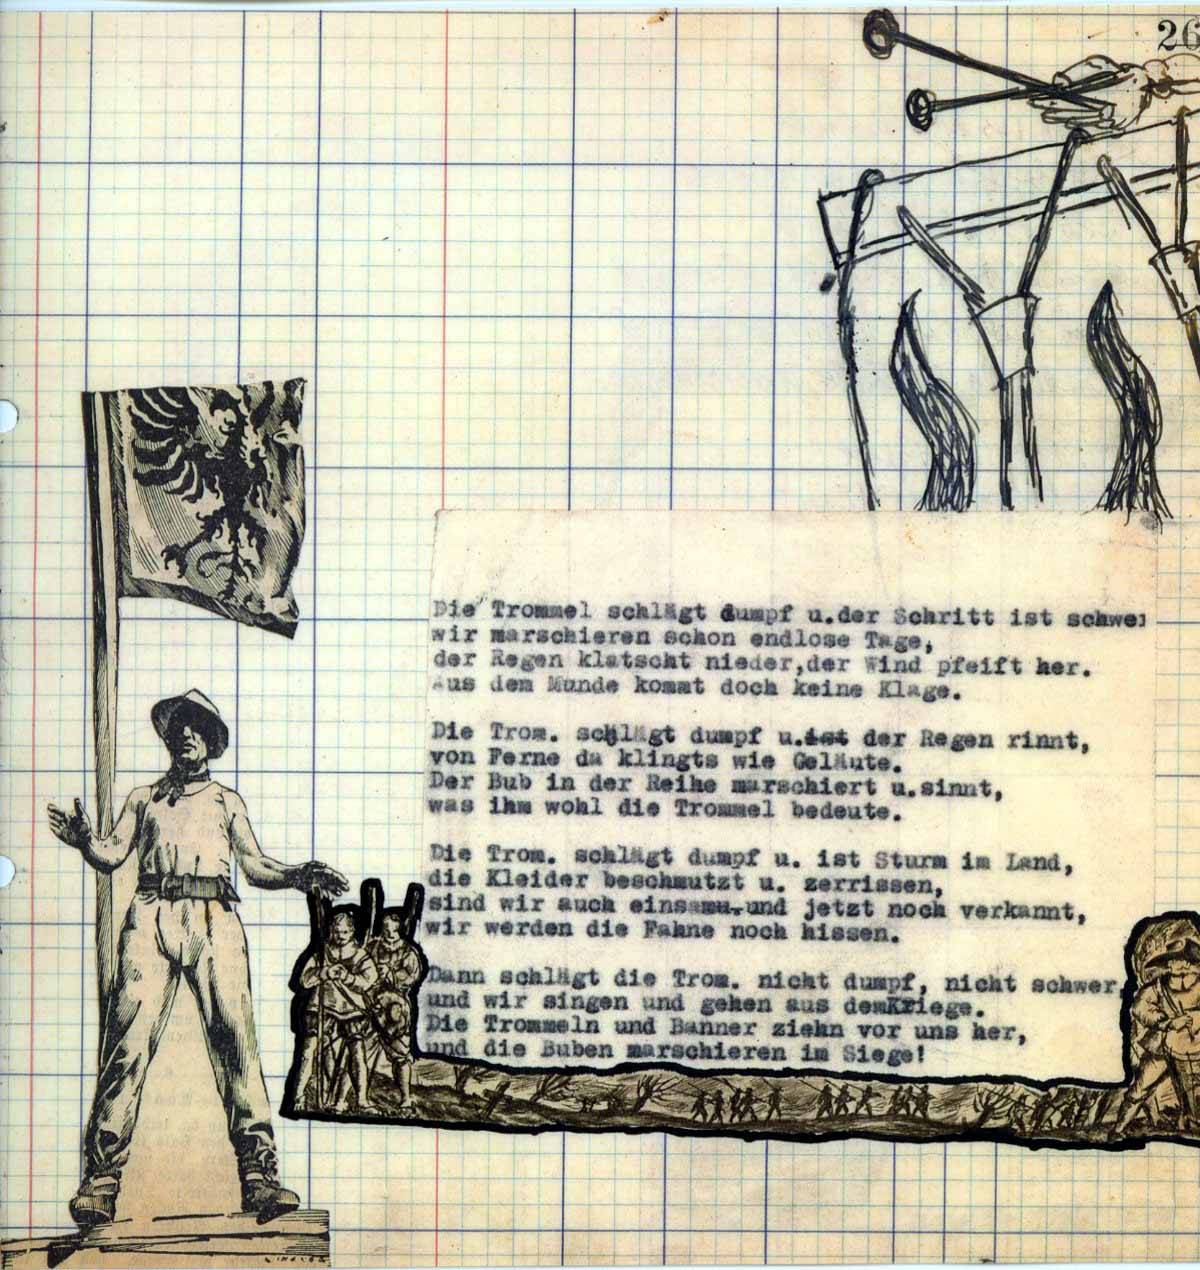 26
Die Trommel schlägt dumpf u.der Schritt ist schwer
wir marschieren schon endlose Tage,
der Regen klatscht nieder,der Wind pfeift her.
Aus dem Munde kommt doch keine Klage.
Die Trom. schlägt dumpf u.ist der Regen rinnt,
von Ferne da klingts wie Geläute.
Der Bub in der Reihe marschiert u.sinnt,
was ihm wohl die Trommel bedeute.
Die Trom. schlägt dumpf u. ist Sturm im Land,
die Kleider beschmutzt u. zerrissen,
sind wir auch einsam.und jetzt noch verkannt,
wir werden die Fahne noch hissen.
Dann schlägt die Trom. nicht dumpf, nicht schwer,
und wir singen und gehen aus demKriege.
Die Trommeln und Banner ziehn vor uns her,
und die Buben marschieren im Siege!